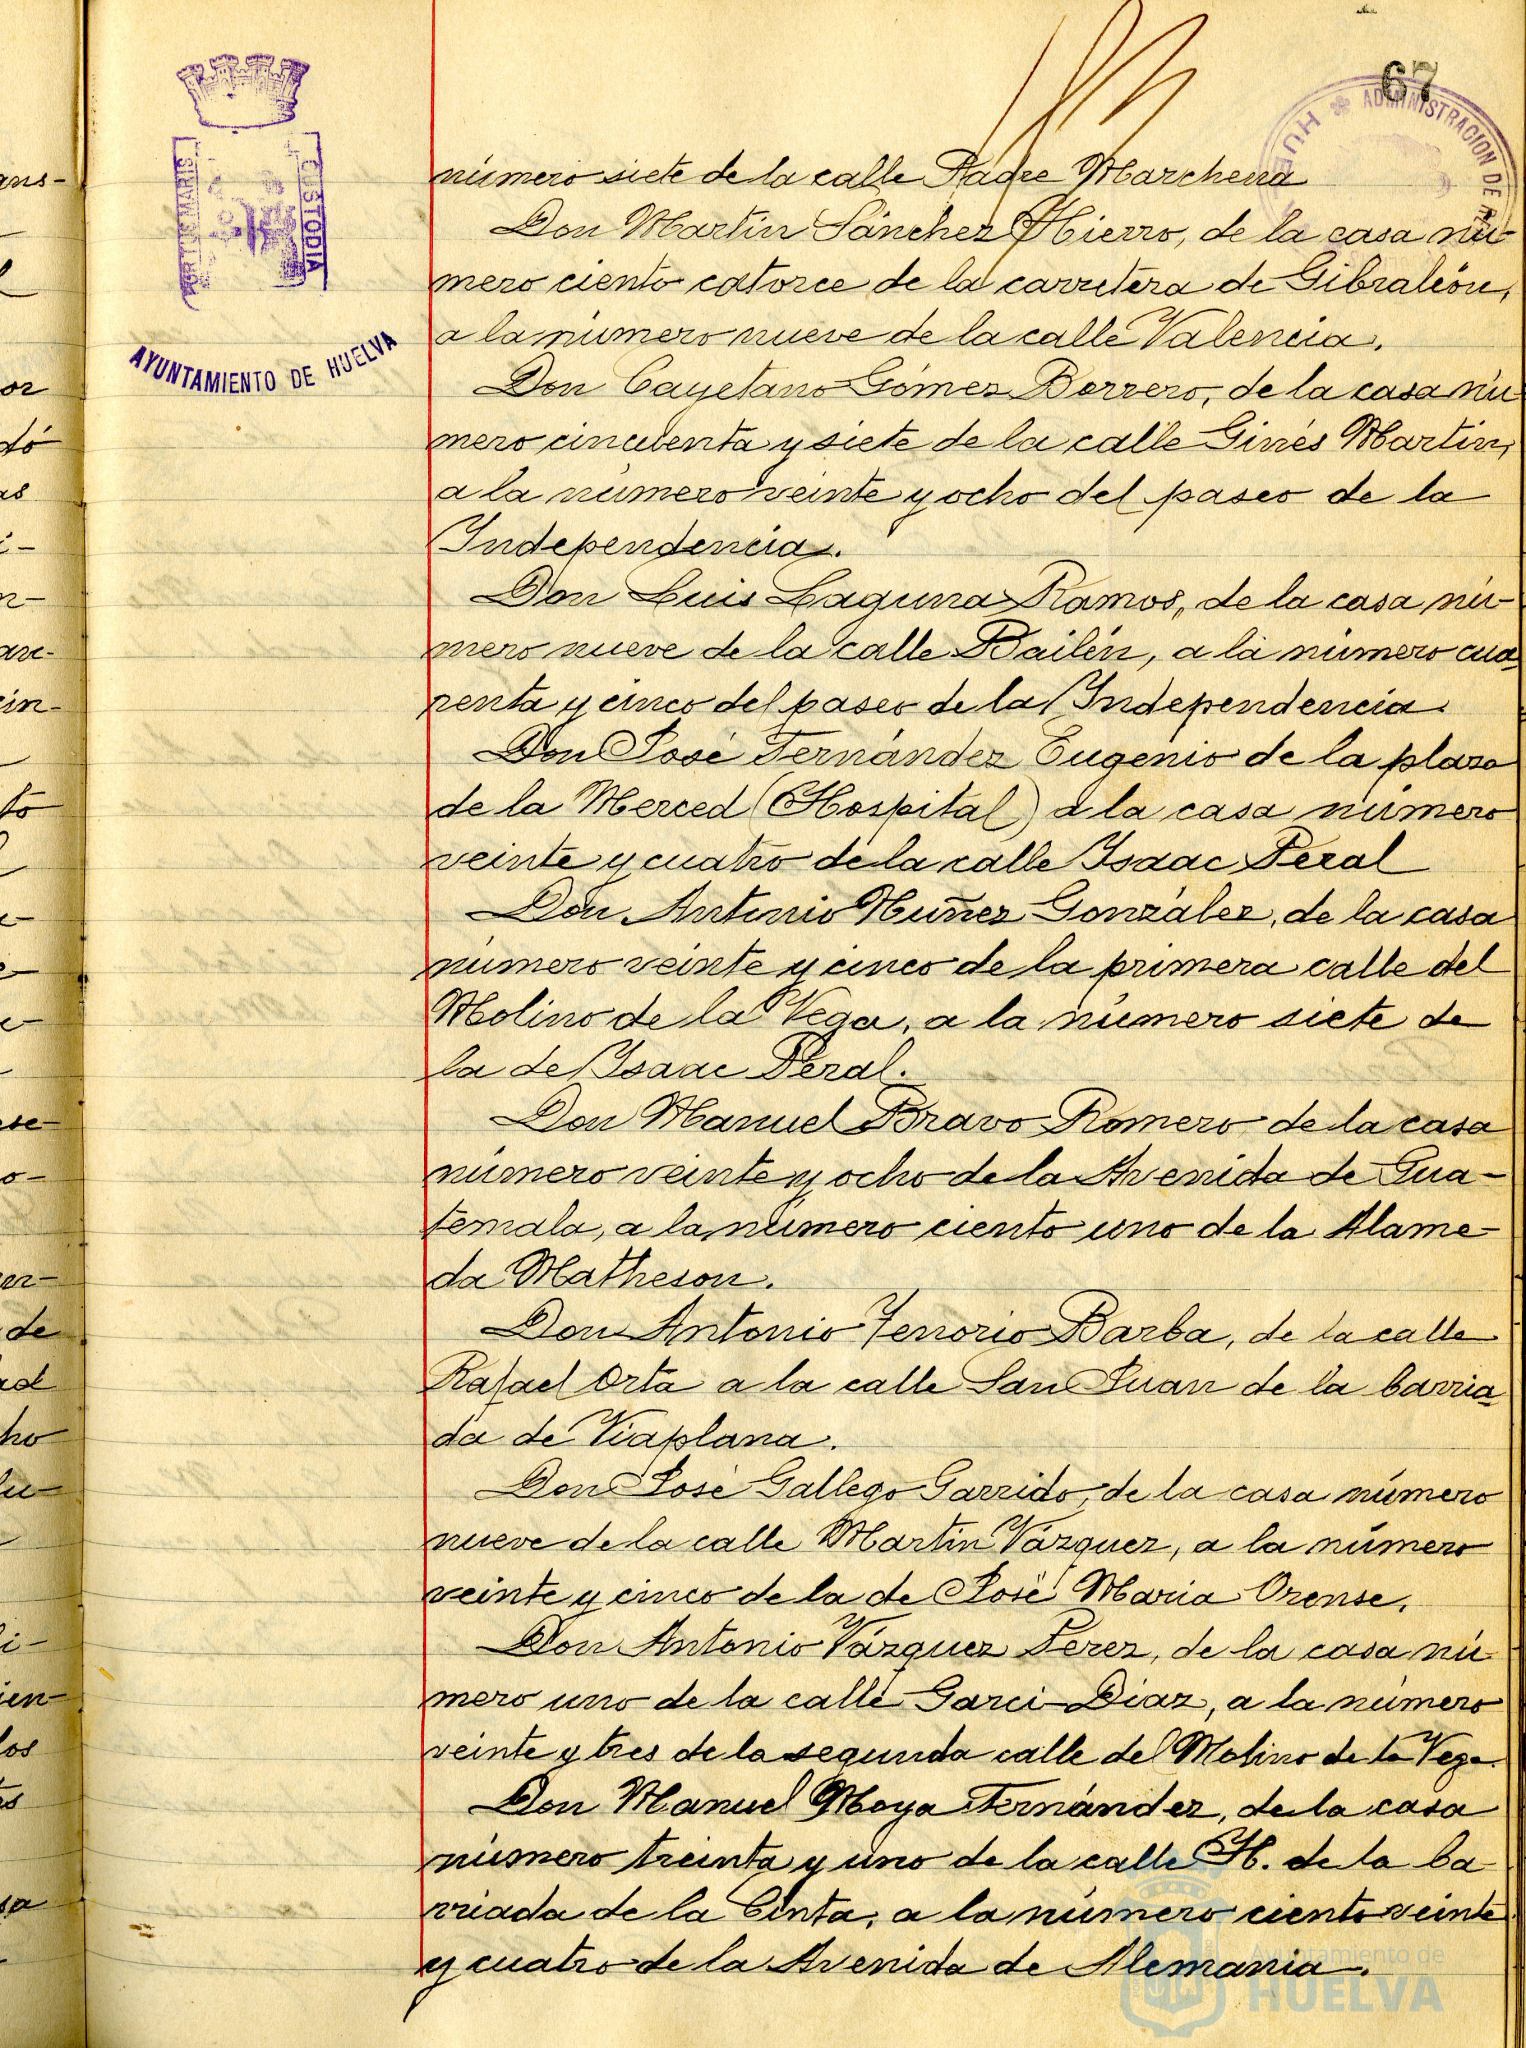 67
ADMINISTRACION DE R
HUELV
PORTUS MARIS
CUSTODIA
AYUNTAMIENTO DE HUELVA
número siete de la calle Padre Marchena
Don Martin Sánchez Hierro, de la casa nú-
mero ciento catorce de la carretera de Gibraleón,
a la número nueve de la calle Valencia.
Don Cayetano Gómez Borrero, de la casa nú
mero cincuenta y siete de la calle Ginés Martin,
a la número veinte y ocho del paseo de la
Independencia.
Don Luis Laguna Ramos, de la casa nú-
mero nueve de la calle Bailén, a la número cua
renta y cinco del paseo de la Independencia.
Don José Fernández Eugenio de la plaza
de la Merced (Hospital) a la casa número
veinte y cuatro de la calle Isaac Peral
Don Antonio Nuñez González, de la casa
número veinte y cinco de la primera calle del
Molino de la Vega, a la número siete de
la de Isaac Peral.
Don Manuel Bravo Romero de la casa
número veinte y ocho de la Avenida de Gua-
temala, a la número ciento uno de la Alame-
da Matheson.
Don Antonio Tenorio Barba, de la calle
Rafael Orta a la calle San Juan de la barria
da de Viaplana.
Don José Gallego Garrido, de la casa número
nueve de la calle Martin Vázquez, a la número
veinte y cinco de la de José Maria Orense.
Don Antonio Vázquez Perez, de la casa nú
mero uno de la calle Garci-Diaz, a la número
veinte y tres de la segunda calle del Molino de la Vega
Don Manuel Moya Fernández, de la casa
número treinta y uno de la calle H. de la ba
rriada de la Cinta, a la número ciento veinte
y cuatro de la Avenida de Alemania.
Ayuntamiento de
HUELVA